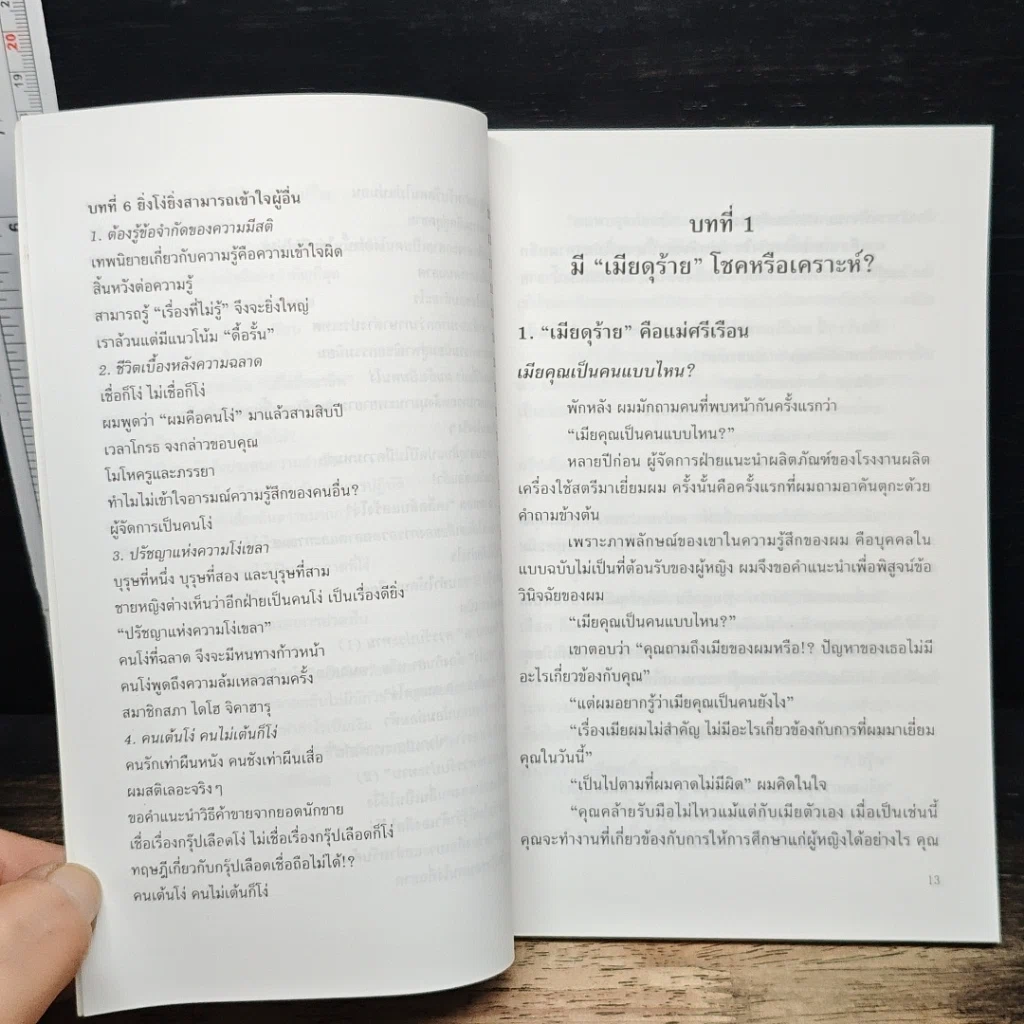 20
19
บทที่ 6 ยิ่งโง่ยิ่งสามารถเข้าใจผู้อื่น
1. ต้องรู้ข้อจำกัดของความมีสติ
เทพนิยายเกี่ยวกับความรู้คือความเข้าใจผิด
สิ้นหวังต่อความรู้
สามารถรู้ “เรื่องที่ไม่รู้” จึงจะยิ่งใหญ่
เราล้วนแต่มีแนวโน้ม “ดื้อรั้น”
2. ชีวิตเบื้องหลังความฉลาด
เชื่อก็โง่ ไม่เชื่อก็โง่
ผมพูดว่า “ผมคือคนโง่” มาแล้วสามสิบปี
เวลาโกรธ จงกล่าวขอบคุณ
โมโหครูและภรรยา
ทำไมไม่เข้าใจอารมณ์ความรู้สึกของคนอื่น?
ผู้จัดการเป็นคนโง่
3. ปรัชญาแห่งความโง่เขลา
บุรุษที่หนึ่ง บุรุษที่สอง และบุรุษที่สาม
ชายหญิงต่างเห็นว่าอีกฝ่ายเป็นคนโง่ เป็นเรื่องดียิ่ง
“ปรัชญาแห่งความโง่เขลา”
คนโง่ที่ฉลาด จึงจะมีหนทางก้าวหน้า
คนโง่พูดถึงความล้มเหลวสามครั้ง
สมาชิกสภา ไดโฮ จิคาฮารุ
4. คนเต้นโง่ คนไม่เต้นก็โง่
คนรักเท่าผืนหนัง คนชังเท่าผืนเสื่อ
ผมสติเลอะจริงๆ
ขอคำแนะนำวิธีค้าขายจากยอดนักขาย
เชื่อเรื่องกรุ๊ปเลือดโง่ ไม่เชื่อเรื่องกรุ๊ปเลือดก็โง่
ทฤษฎีเกี่ยวกับกรุ๊ปเลือดเชื่อถือไม่ได้!?
คนเต้นโง่ คนไม่เต้นก็โง่
บทที่ 1
มี “เมียดุร้าย” โชคหรือเคราะห์?
1. “เมียดุร้าย” คือแม่ศรีเรือน
เมียคุณเป็นคนแบบไหน?
พักหลัง ผมมักถามคนที่พบหน้ากันครั้งแรกว่า
“เมียคุณเป็นคนแบบไหน?”
หลายปีก่อน ผู้จัดการฝ่ายแนะนำผลิตภัณฑ์ของโรงงานผลิต
เครื่องใช้สตรีมาเยี่ยมผม ครั้งนั้นคือครั้งแรกที่ผมถามอาคันตุกะด้วย
คำถามข้างต้น
เพราะภาพลักษณ์ของเขาในความรู้สึกของผม คือบุคคลใน
แบบฉบับไม่เป็นที่ต้อนรับของผู้หญิง ผมจึงขอคำแนะนำเพื่อพิสูจน์ข้อ
วินิจฉัยของผม
“เมียคุณเป็นคนแบบไหน?”
เขาตอบว่า “คุณถามถึงเมียของผมหรือ!? ปัญหาของเธอไม่มี
อะไรเกี่ยวข้องกับคุณ”
“แต่ผมอยากรู้ว่าเมียคุณเป็นคนยังไง”
“เรื่องเมียผมไม่สำคัญ ไม่มีอะไรเกี่ยวข้องกับการที่ผมมาเยี่ยม
คุณในวันนี้”
“เป็นไปตามที่ผมคาดไม่มีผิด” ผมคิดในใจ
“คุณคล้ายรับมือไม่ไหวแม้แต่กับเมียตัวเอง เมื่อเป็นเช่นนี้
คุณจะทำงานที่เกี่ยวข้องกับการให้การศึกษาแก่ผู้หญิงได้อย่างไร คุณ
13